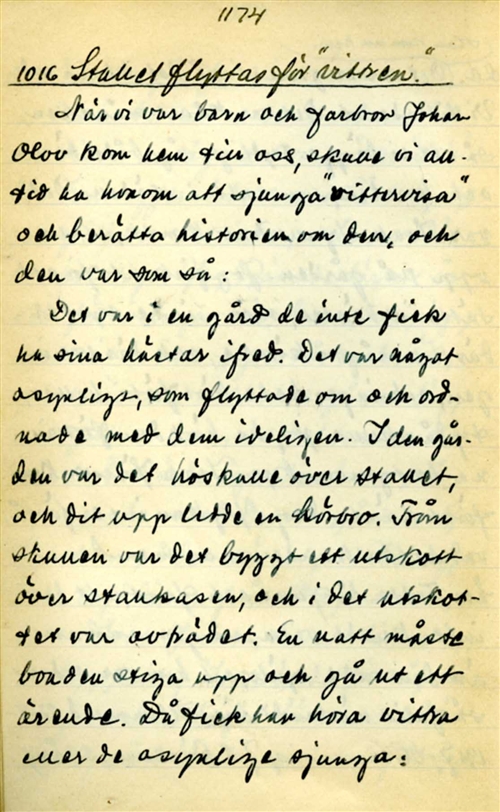 1174
1016 Stallet flyttas för "vittren."
När vi var barn och farbror Johan
Olov kom hem till oss, skulle vi all-
tid ha honom att sjunga "vittervisa"
och berätta historien om den, och
den var som så:
Det var i en gård de inte fick
ha sina hästar ifred. Det var något
osynligt, som flyttade om och ord-
nade med dem ideligen. I den går-
den var det höskulle över stallet,
och dit upp ledde en körbro. Från
skullen var det byggt ett utskott
över stallkasen, och i det utskot-
tet var avträdet. En natt måste
bonden stiga upp och gå ut ett
ärende. Då fick han höra vittra
eller de osynlige sjunga: